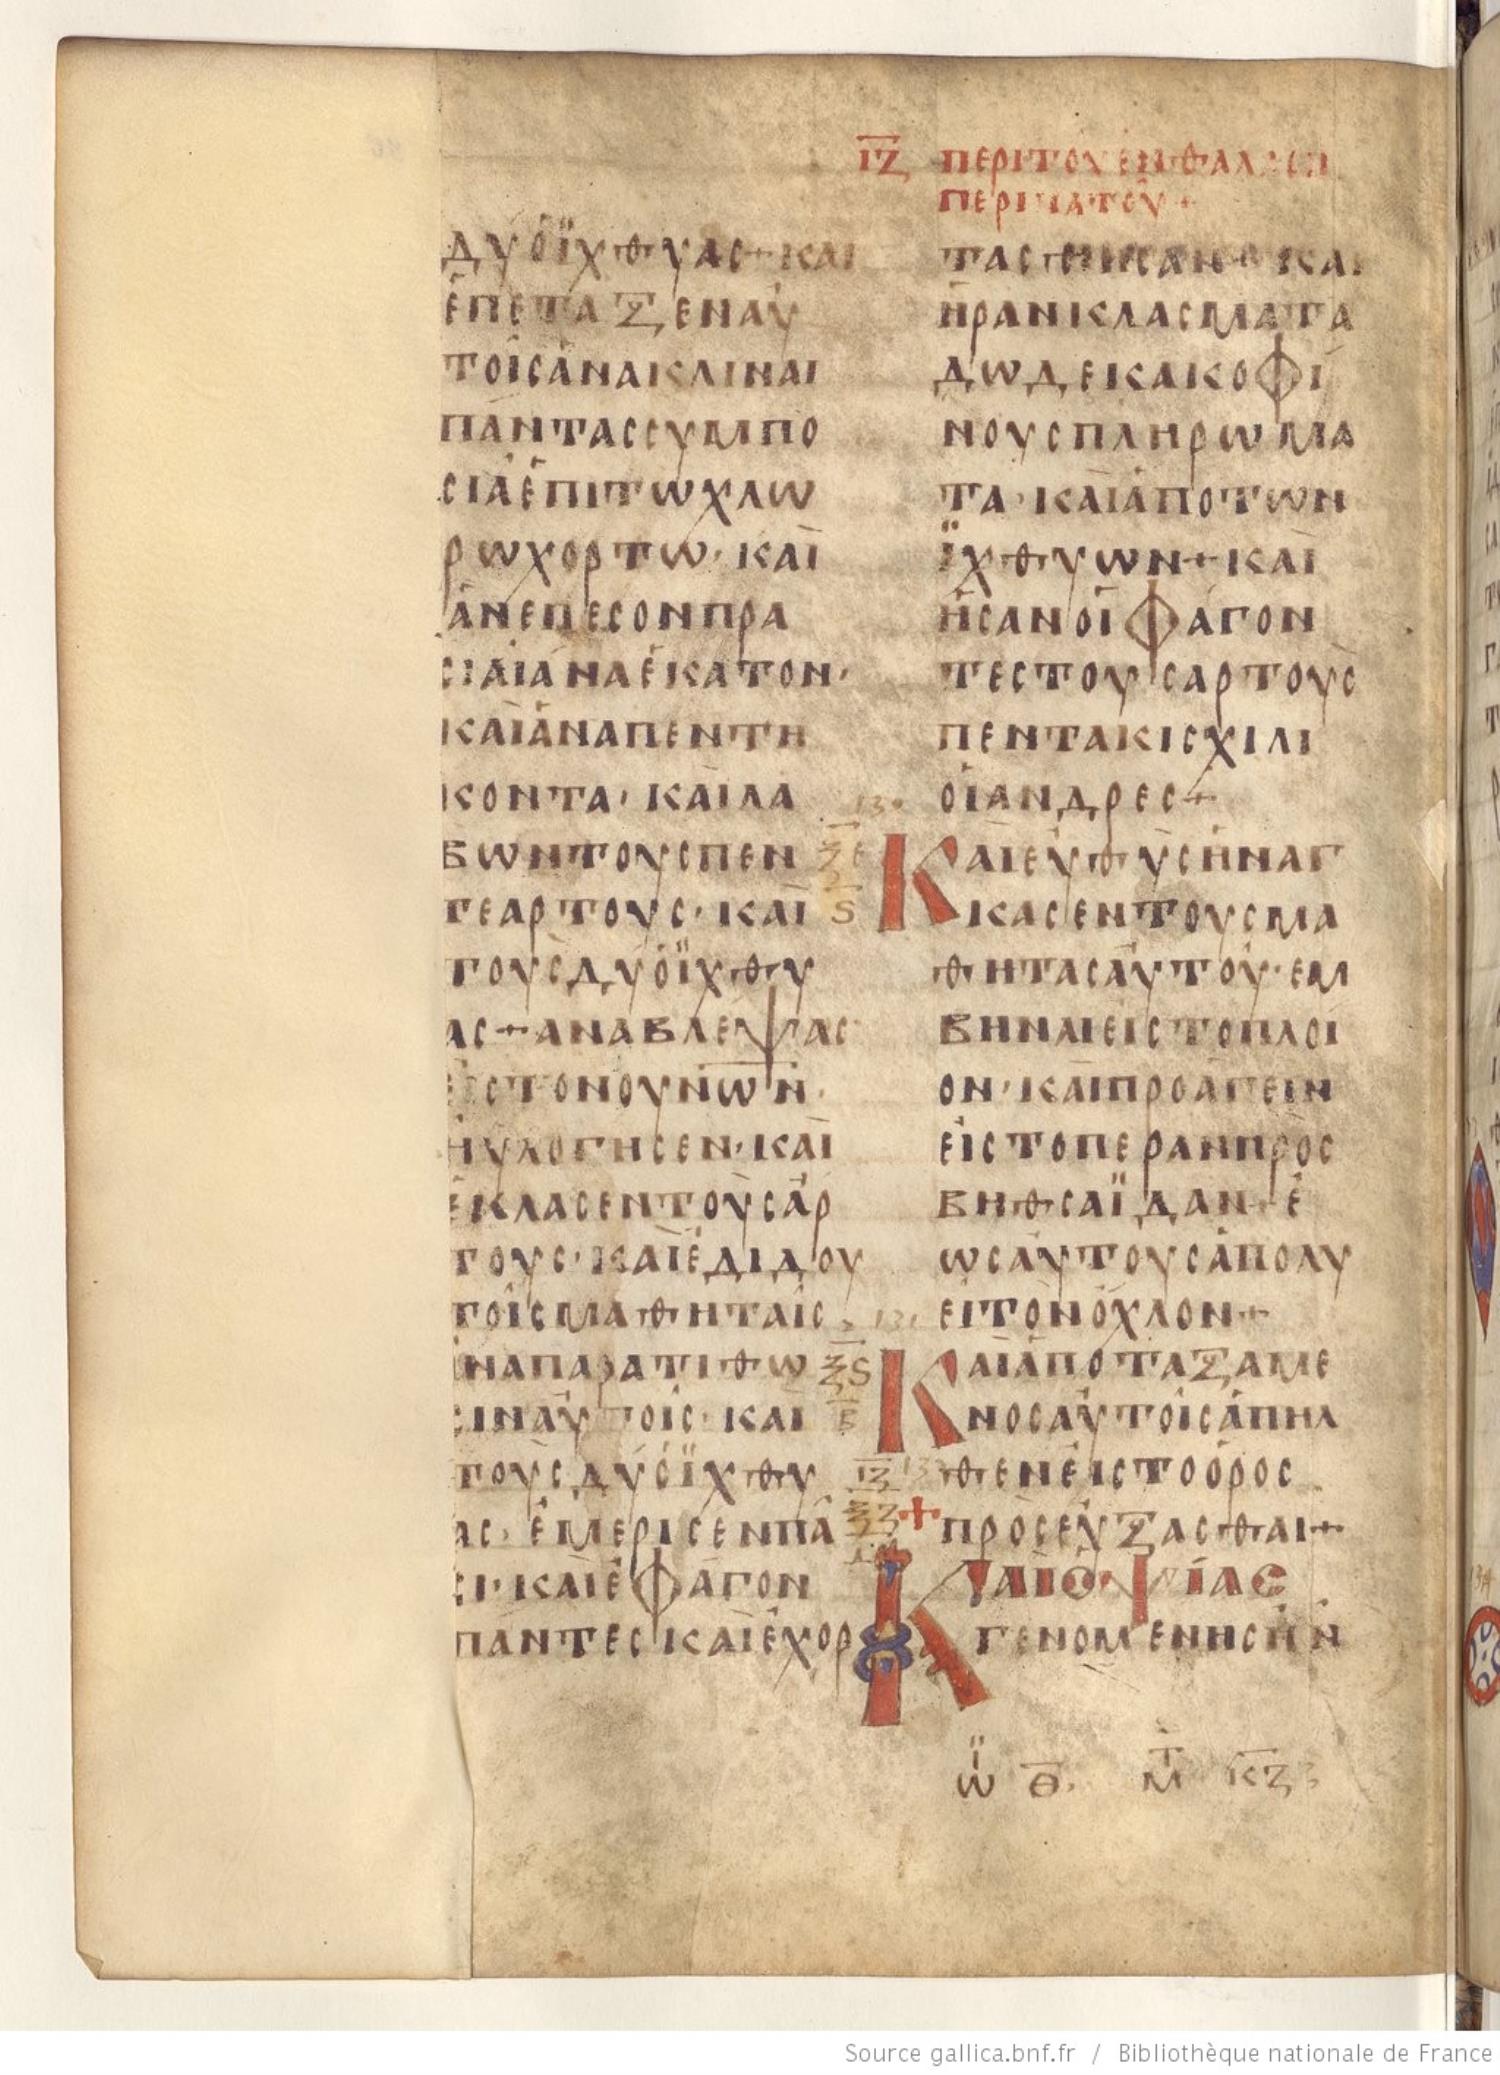 ΙΖ ΠΕΡΙ ΤΟΥ ΕΝ ΘΑΛΑΣΣΗ
ΠΕΡΙΠΑΤΟΥ+
ΔΥΟ ΪΧΘΥΑΣ+ΚΑΙ
ΕΠΕΤΑΞΕΝ ΑΥ
ΤΟΙΣ ΑΝΑΚΛΙΝΑΙ
ΠΑΝΤΑΣ ΣΥΜΠΟ
ΣΙΑ ΕΠΙ ΤΩ ΧΛΩ
ΡΩ ΧΟΡΤΩ· ΚΑΙ
ΑΝΕΠΕΣΟΝ ΠΡΑ
ΣΙΑΙ ΑΝΑ ΕΚΑΤΟΝ·
ΚΑΙ ΑΝΑ ΠΕΝΤΗ
ΚΟΝΤΑ· ΚΑΙ ΛΑ
ΒΩΝ ΤΟΥΣ ΠΕΝ
ΤΕ ΑΡΤΟΥΣ· ΚΑΙ
ΤΟΥΣ ΔΥΟ ΪΧΘΥ
ΑΣ+ΑΝΑΒΛΕΨΑΣ
ΕΙΣ ΤΟΝ ΟΥΝΩΝ·
ΗΥΛΟΓΗΣΕΝ· ΚΑΙ
ΕΚΛΑΣΕΝ ΤΟΥΣ ΑΡ
ΤΟΥΣ· ΚΑΙ ΕΔΙΔΟΥ
ΤΟΙΣ ΜΑΘΗΤΑΙΣ
ΙΝΑ ΠΑΡΑΤΙΘΩ
ΣΙΝ ΑΥΤΟΙΣ· ΚΑΙ
ΤΟΥΣ ΔΥΟ ΪΧΘΥ
ΑΣ· ΕΜΕΡΙΣΕΝ ΠΑ
ΣΙ· ΚΑΙ ΕΦΑΓΟΝ
ΠΑΝΤΕΣ ΚΑΙ ΕΧΟΡ
ΤΑΣΘΗΣΑΝ+ΚΑΙ
ΗΡΑΝ ΚΛΑΣΜΑΤΑ
ΔΩΔΕΚΑ ΚΟΦΙ
ΝΟΥΣ ΠΛΗΡΩΜΑ
ΤΑ· ΚΑΙ ΑΠΟ ΤΩΝ
ΪΧΘΥΩΝ+ΚΑΙ
ΗΣΑΝ ΟΙ ΦΑΓΟΝ
ΤΕΣ ΤΟΥΣ ΑΡΤΟΥΣ
ΠΕΝΤΑΚΙΣΧΙΛΙ
ΟΙ ΑΝΔΡΕΣ+
130
ΞΕ ΚΑΙ ΕΥΘΥΣ ΗΝΑΓ
Ϛ ΚΑΣΕΝ ΤΟΥΣ ΜΑ
ΘΗΤΑΣ ΑΥΤΟΥ· ΕΜ
ΒΗΝΑΙ ΕΙΣ ΤΟ ΠΛΟΙ
ΟΝ· ΚΑΙ ΠΡΟΑΓΕΙΝ
ΕΙΣ ΤΟ ΠΕΡΑΝ ΠΡΟΣ
ΒΗΘΣΑΪΔΑΝ+Ε
ΩΣ ΑΥΤΟΥΣ ΑΠΟΛΥ
ΕΙ ΤΟΝ ΟΧΛΟΝ+
131
ΞϚ ΚΑΙ ΑΠΟΤΑΞΑΜΕ
Β ΝΟΣ ΑΥΤΟΙΣ ΑΠΗΛ
ΙΖ ΘΕΝ ΕΙΣ ΤΟ ΟΡΟΣ
ΞΖ + ΠΡΟΣΕΥΞΑΣΘΑΙ+
ΚΑΙ ΟΨΙΑΣ
ΓΕΝΟΜΕΝΗΣ ΗΝ
ΪΩ Θ· ΜΤ ΚΖ
Source gallica.bnf.fr / Bibliothèque nationale de France